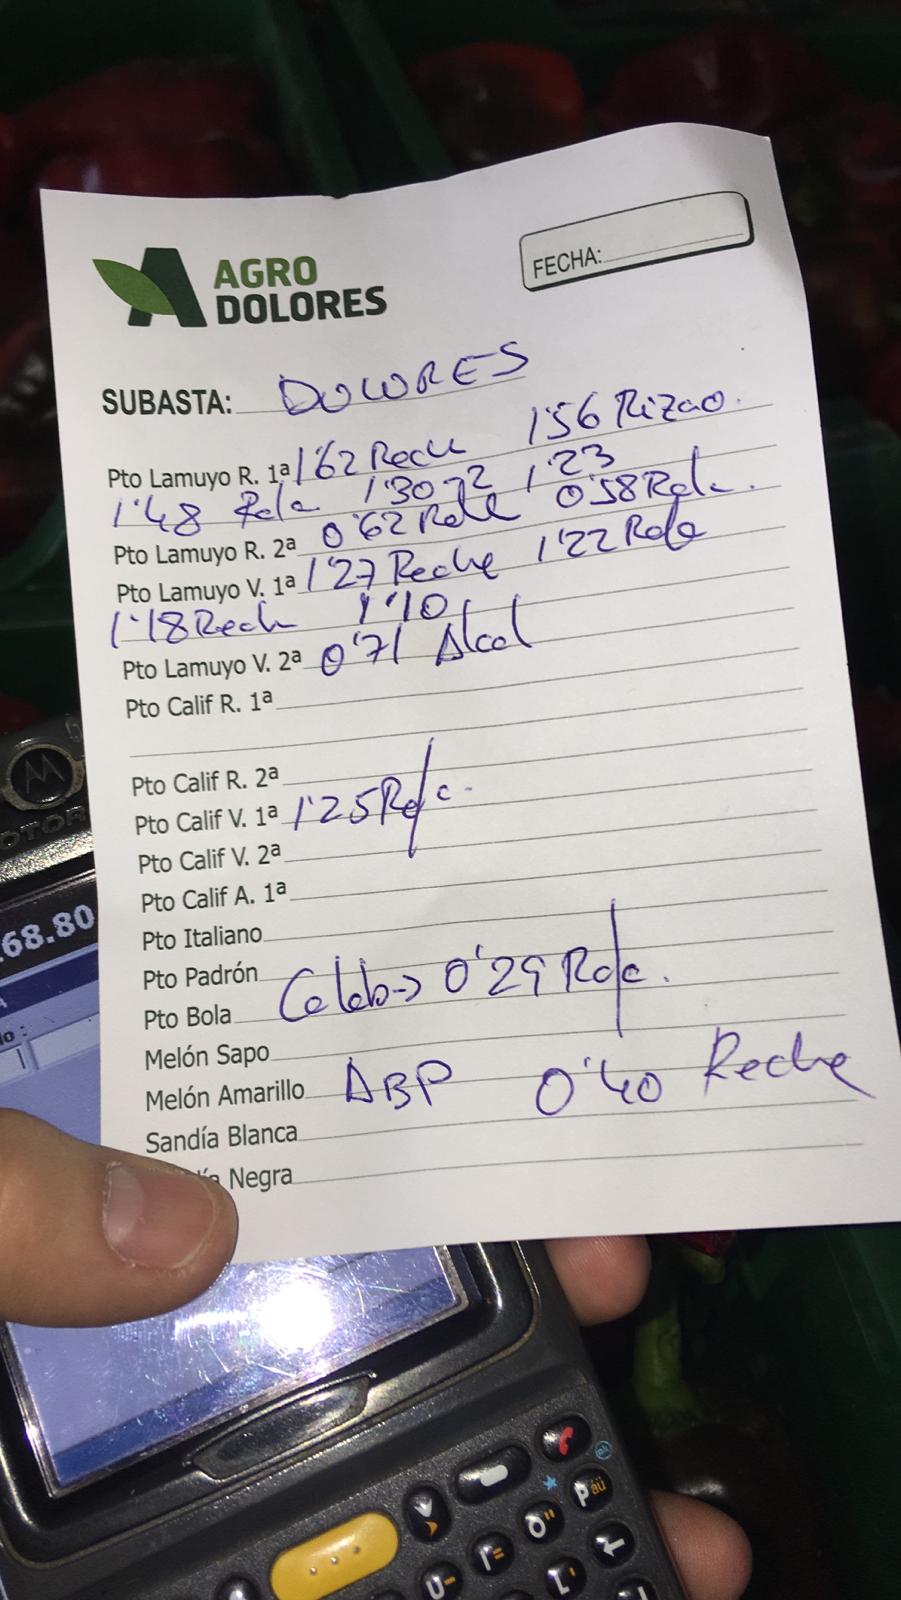 AGRO
DOLORES
FECHA:
SUBASTA: DOLORES
Pto Lamuyo R. 1ª 1'62 Rech 1'56 Rizao.
1'48 1'30 72 1'23
Pto Lamuyo R. 2ª 0'62 0'58
Pto Lamuyo V. 1ª 1'27 Reche 1'22
1'18 Rech 1'10
Pto Lamuyo V. 2ª 0'71 Alcol
Pto Calif R. 1ª
Pto Calif R. 2ª
Pto Calif V. 1ª 1'25
Pto Calif V. 2ª
Pto Calif A. 1ª
Pto Italiano
Pto Padrón
Pto Bola 0'29
Melón Sapo
Melón Amarillo ABP 0'40 Reche
Sandía Blanca
Negra
68.80